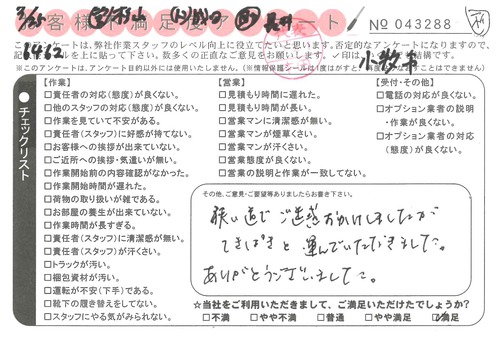 3/25
お客様不満足度アンケート
No 043288
1462
小牧市
このアンケートは、弊社作業スタッフのレベル向上に役立てたいと思います。否定的なアンケートになりますので、
※このアンケートは、アンケート目的以外には使用いたしません。
●チェックリスト
【作業】
□責任者の対応(態度)が良くない。
□他のスタッフの対応(態度)が良くない。
□作業を見ていて不安がある。
□責任者(スタッフ)に好感が持てない。
□お客様への挨拶が出来ていない。
□ご近所への挨拶・気遣いが無い。
□作業開始前の内容確認がなかった。
□作業開始時間が遅れた。
□荷物の取り扱いが雑である。
□お部屋の養生が出来ていない。
□作業時間が長すぎる。
□責任者(スタッフ)に清潔感が無い。
□責任者(スタッフ)が汗くさい。
□トラックが汚い。
□梱包資材が汚い。
□運転が不安(下手)である。
□靴下の履き替えをしてない。
□スタッフにやる気がみられない。
【営業】
□見積もり時間に遅れた。
□見積もり時間が長い。
□営業マンに清潔感が無い。
□営業マンが煙草くさい。
□営業マンが汗くさい。
□営業態度が良くない。
□営業の説明と作業が一致してない。
【受付・その他】
□電話の対応が良くない。
□オプション業者の説明
・作業が良くない。
□オプション業者の対応
(態度)が良くない。
その他、ご意見・ご要望等ありましたらお書き下さい。
狭い道でご迷惑おかけしましたが
てきぱきと運んでいただきました。
ありがとうございました。
☆当社をご利用いただきまして、ご満足いただけたでしょうか?
□不満 □やや不満 □普通 □やや満足 ☑満足